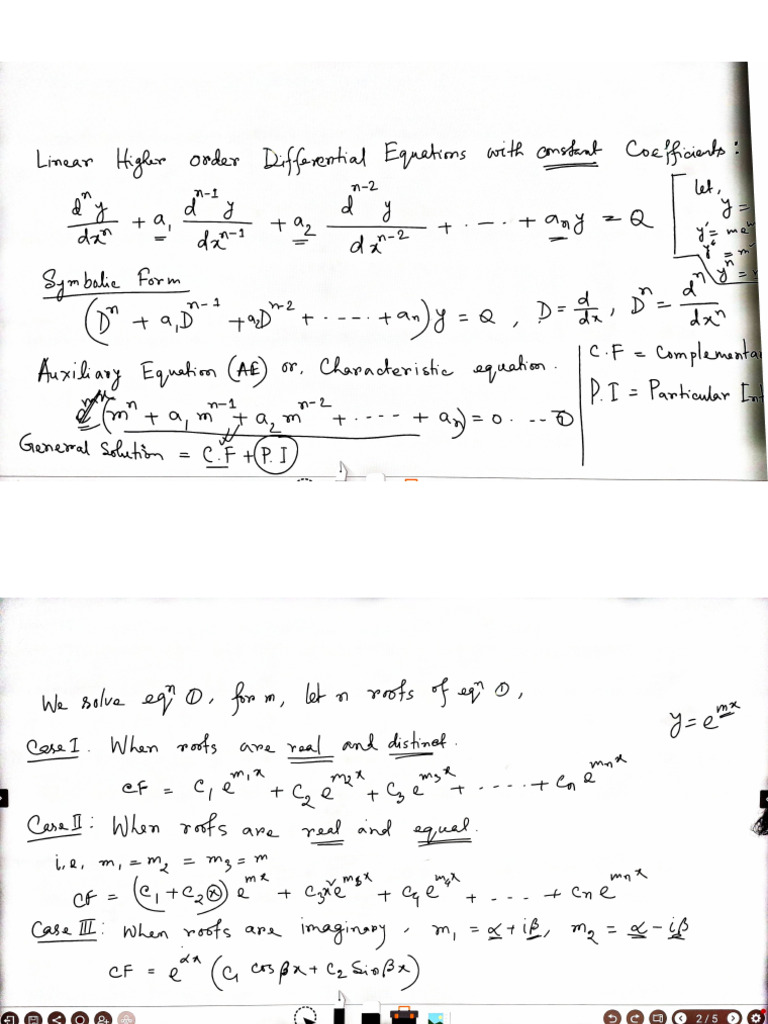 Linear Higher order Differential Equations with constant Coefficients:
dⁿy/dxⁿ + a₁ dⁿ⁻¹y/dxⁿ⁻¹ + a₂ dⁿ⁻²y/dxⁿ⁻² + ..... + aₙy = Q
let,
y =
y' = me
y" = m
yⁿ =
Symbolic Form
(Dⁿ + a₁Dⁿ⁻¹ + a₂Dⁿ⁻² + ...... + aₙ)y = Q, D = d/dx, Dⁿ = dⁿ/dxⁿ
Auxiliary Equation (AE) or, Characteristic equation.
(mⁿ + a₁mⁿ⁻¹ + a₂mⁿ⁻² + ..... + aₙ) = 0 . --- ①
General Solution = C.F + P.I
C.F = Complementa
P.I = Particular Int
We solve eqⁿ ①, for m, let n roots of eqⁿ ①,
y = e^{mx}
Case I. When roots are real and distinct.
CF = C₁e^{m₁x} + C₂e^{m₂x} + C₃e^{m₃x} + ..... + Cₙe^{mₙx}
Case II: When roots are real and equal.
i.e, m₁ = m₂ = m₃ = m
CF = (C₁ + C₂x)e^{mx} + C₃x e^{m₃x} + C₄e^{m₄x} + .... + Cₙe^{mₙx}
Case III: When roots are imaginary, m₁ = α + iβ, m₂ = α - iβ
CF = e^{αx} (C₁ cosβx + C₂ Sinβx)
2/5